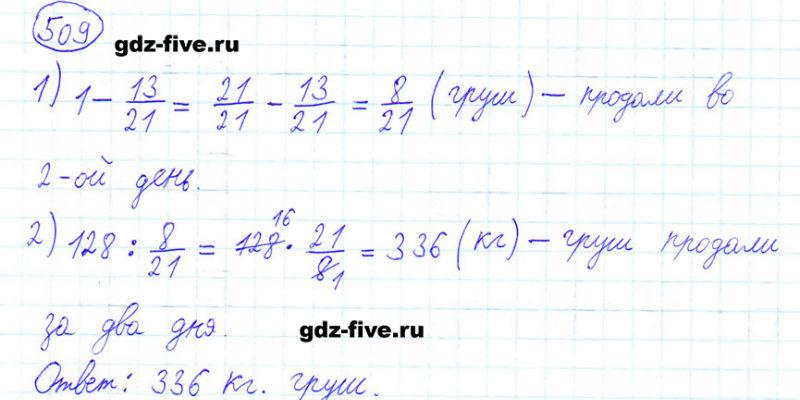 509
gdz-five.ru
1) 1 - 13/21 = 21/21 - 13/21 = 8/21 (груш) - продали во
2-ой день.
2) 128 : 8/21 = 128 16 · 21/8 1 = 336 (кг) - груш продали
за два дня.
gdz-five.ru
Ответ: 336 кг. груш.